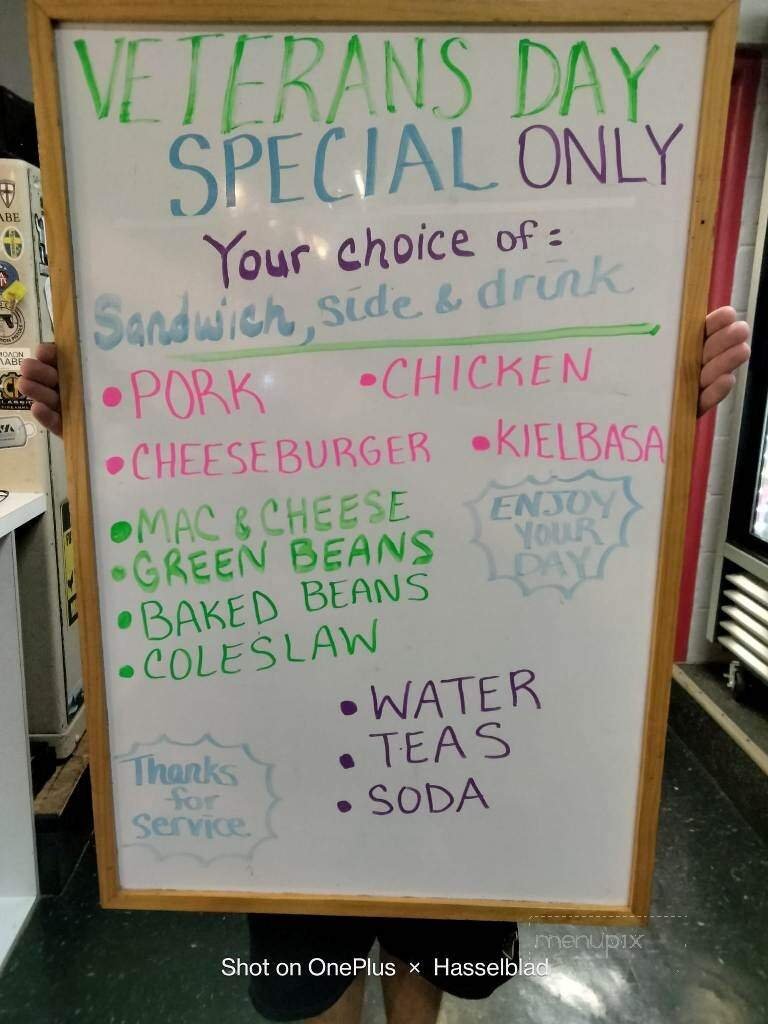 VETERANS DAY
SPECIAL ONLY
Your choice of:
Sandwich, side & drink
•PORK •CHICKEN
•CHEESEBURGER •KIELBASA
•MAC & CHEESE
•GREEN BEANS
•BAKED BEANS
•COLESLAW
ENJOY
YOUR
DAY
•WATER
•TEAS
•SODA
Thanks
for
Service
menupix
Shot on OnePlus × Hasselblad